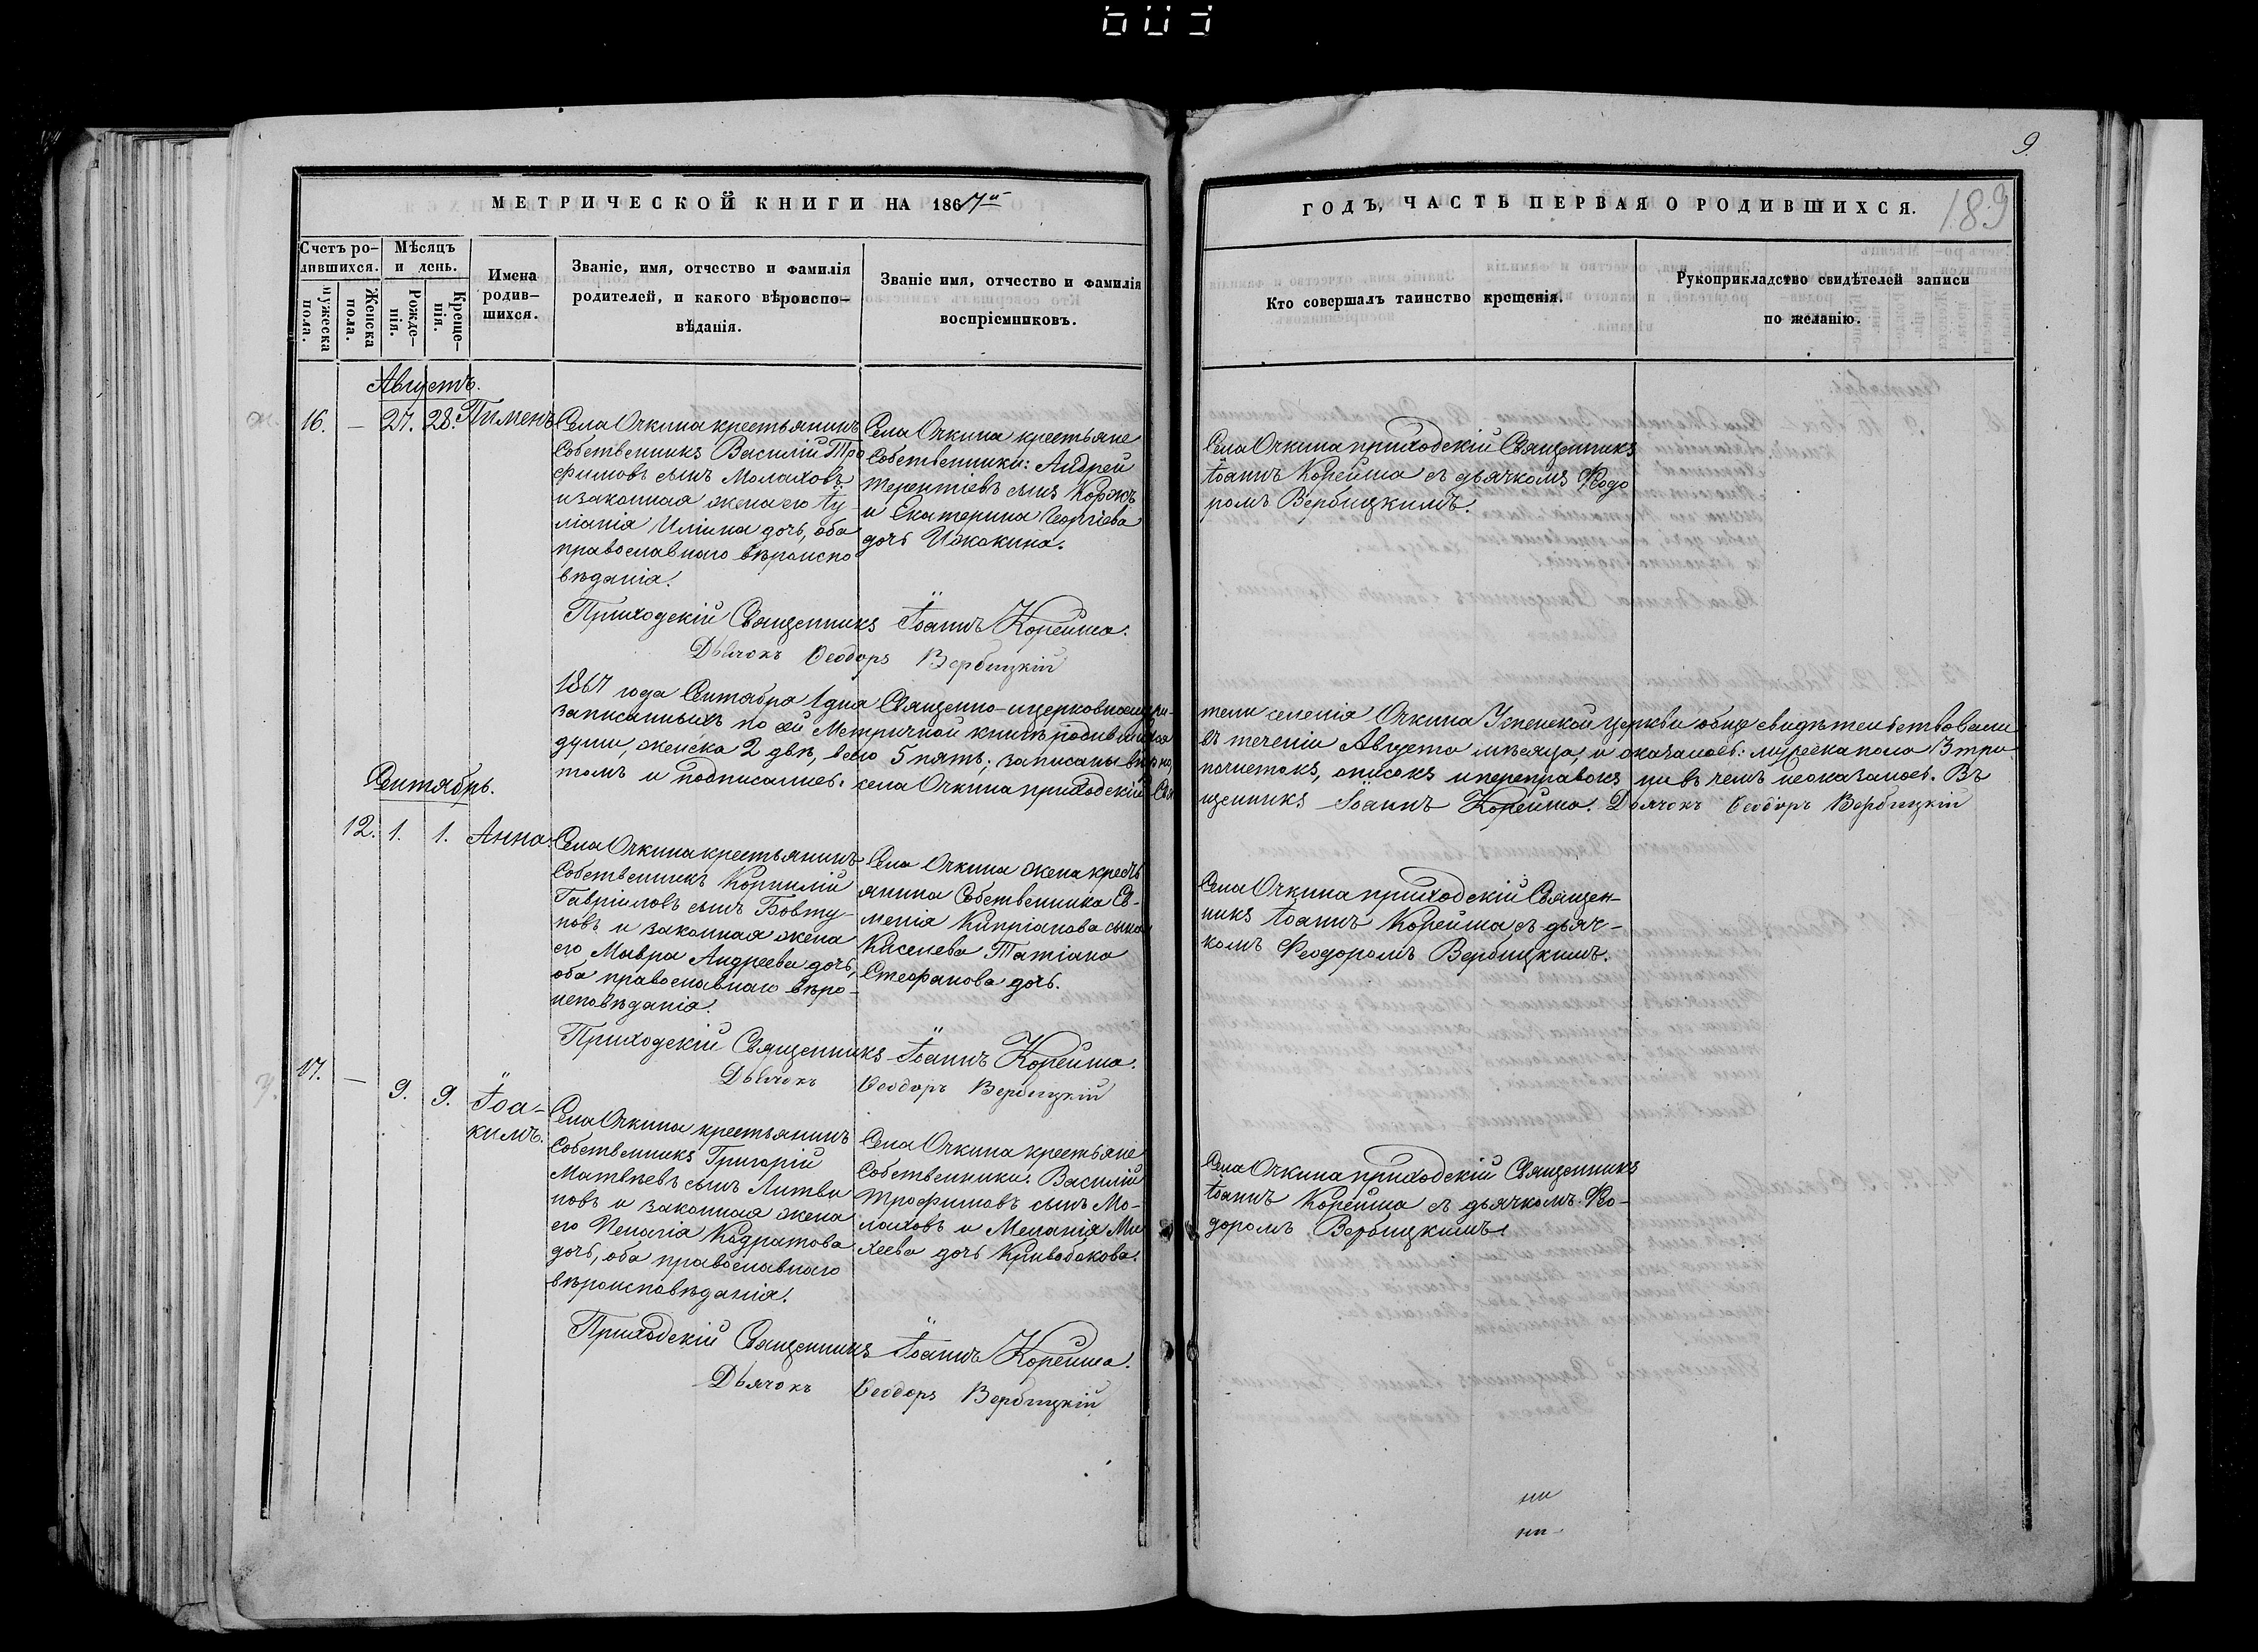 9.
МЕТРИЧЕСКОЙ КНИГИ НА 1867й
ГОДЪ, ЧАСТЬ ПЕРВАЯ О РОДИВШИХСЯ.
189
Счетъ ро-
дившихся.
Мѣсяцъ
и день.
мужеска
пола.
Женска
пола.
Рожде-
нія.
Креще-
нія.
Имена
родив-
шихся.
Званіе, имя, отчество и фамилія
родителей, и какого вѣроиспо-
вѣданія.
Званіе имя, отчество и фамилія
воспріемниковъ.
Кто совершалъ таинство крещенія.
Рукоприкладство свидѣтелей записи
по желанію.
Августъ.
16. — 27. 28. Пименъ
Села Очкина крестьянинъ
Собственникъ Василій Тро
фимовъ сынъ Молаховъ
и законная жена его Іу-
ліанія Иліина дочь, оба
православнаго вѣроиспо
вѣданія.
Села Очкина крестьяне
Собственники: Андрей
Терентіевъ сынъ Коржъ
и Екатерина Георгіева
дочь
Села Очкина приходскій Священникъ
Іоаннъ Корейша съ дьячкомъ Ѳеодо
ромъ Вербицкимъ.
Приходскій Священникъ Іоаннъ Корейша.
Дьячокъ Ѳеодоръ Вербицкій
1867 года Сентября 1 дня Священно-и церковнослужи-
тели селенія Очкина Успенской церкви обще свидѣтельствовали
записанныхъ по сей Метричной книгѣ родившихся
въ теченіи Августа мѣсяца, и оказалось: мужеска пола 3 три
души, женска 2 двѣ, всего 5 пять; записаны вѣрно,
почистокъ, описокъ и переправокъ ни въ чемъ неоказалось. Въ
томъ и подписались. села Очкина приходскій Свя
щенникъ Іоаннъ Корейша. Дьячокъ Ѳеодоръ Вербицкій
Сентябрь.
12. 1. 1. Анна.
Села Очкина крестьянинъ
Собственникъ Корнилій
Гавріиловъ сынъ Бовту-
новъ и законная жена
его Мавра Андреева дочь,
оба православнаго вѣро-
исповѣданія.
Села Очкина жена кресть
янина Собственника Ев-
менія Кипріанова сына
Киселева Татіана
Стефанова дочь.
Села Очкина приходскій Священ-
никъ Іоаннъ Корейша съ дьяч-
комъ Ѳеодоромъ Вербицкимъ.
Приходскій Священникъ Іоаннъ Корейша.
Дьячокъ Ѳеодоръ Вербицкій
17. — 9. 9. Іоа-
кимъ.
Села Очкина крестьянинъ
Собственникъ Григорій
Матвѣевъ сынъ Литви
новъ и законная жена
его Пелагія Кодратова
дочь, оба православнаго
вѣроисповѣданія.
Села Очкина крестьяне
Собственники: Василій
Трофимовъ сынъ Мо-
лаховъ и Меланія Ми
хеева дочь Кривобокова.
Села Очкина приходскій Священникъ
Іоаннъ Корейша съ дьячкомъ Ѳео-
доромъ Вербицкимъ.
Приходскій Священникъ Іоаннъ Корейша.
Дьячокъ Ѳеодоръ Вербицкій